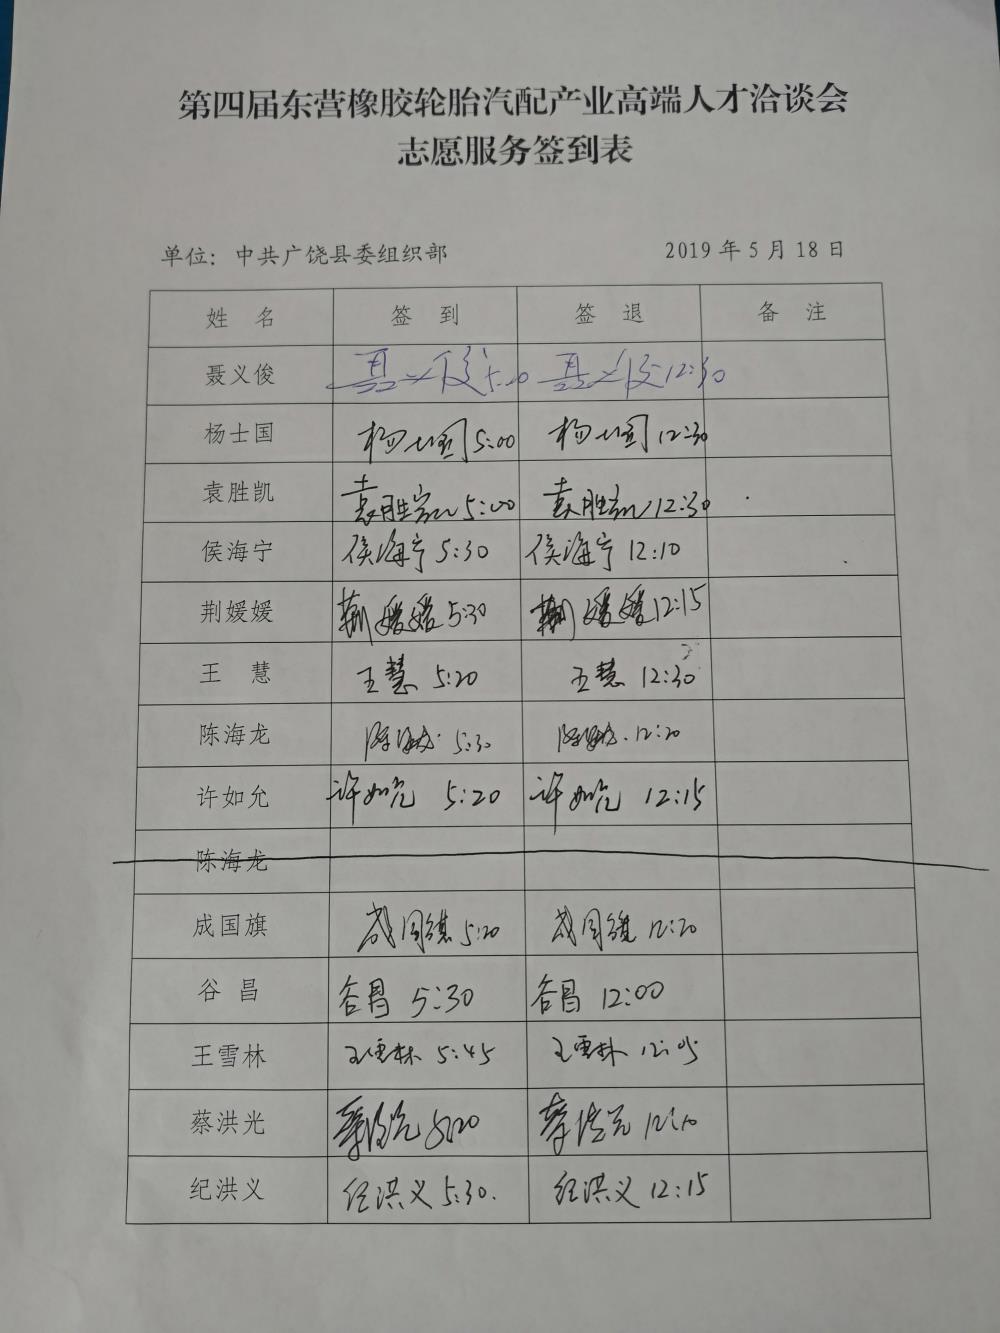 第四届东营橡胶轮胎汽配产业高端人才洽谈会
志愿服务签到表
单位：中共广饶县委组织部 2019年5月18日
姓 名 签 到 签 退 备 注
聂义俊 聂义俊 5:20 聂义俊 12:30
杨士国 杨士国 5:00 杨士国 12:30
袁胜凯 袁胜凯 5:00 袁胜凯 12:30
侯海宁 侯海宁 5:30 侯海宁 12:10
荆媛媛 荆媛媛 5:30 荆媛媛 12:15
王 慧 王慧 5:20 王慧 12:30
陈海龙 陈海龙 5:30 陈海龙 12:20
许如允 许如允 5:20 许如允 12:15
陈海龙
成国旗 成国旗 5:20 成国旗 12:20
谷 昌 谷昌 5:30 谷昌 12:00
王雪林 王雪林 5:45 王雪林 12:05
蔡洪光 蔡洪光 5:20 蔡洪光 12:10
纪洪义 纪洪义 5:30. 纪洪义 12:15